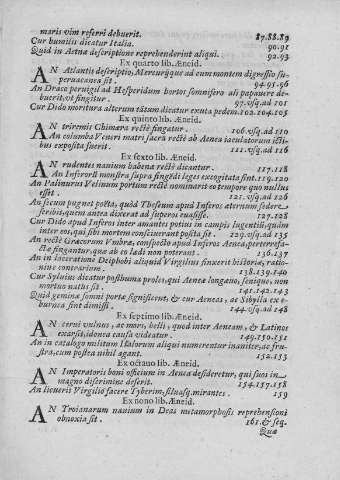 maris vim referri debuerit. 87.88.89
Cur humilis dicatur Italia. 90.91
Quid in Aetnæ descriptione reprehenderint aliqui. 92.93
Ex quarto lib. Æneid.
AN Atlantis descriptio, Mercurijque ad eum montem digressio su-
peruacanea sit. 94.95.96
An Draco peruigil ad Hesperidum hortos somnifero ali papauere de-
buerit, vt fingitur. 97. vsq. ad 101
Cur Dido moritura alterum tātum dicatur exuta pedem. 102.104.105
Ex quinto lib. Æneid.
AN triremis Chimæra rectè fingatur. 106. vsq. ad 110
An columba Veneri matri sacra rectè ab Aenea iaculatorum icti-
bus exposita fuerit. 111. vsq. ad 116
Ex sexto lib. Æneid.
AN rudentes nauium habenæ rectè dicantur. 117.118
An Inferorū monstra supra fingēdi leges excogitata sint. 119.120
An Palinurus Velinum portum rectè nominarit eo tempore quo nullus
esset. 121. vsq. ad 126
An secum pugnet poëta, quòd Theseum apud Inferos æternùm seder
scribit, quem antea dixerat ad superos euasisse. 127.128
Cur Dido apud Inferos inter amantes potius in campis lugentibus, quàm
inter eos, qui sibi mortem consciuerant posita sit. 129. vsq. ad 135
An rectè Græcorum Vmbræ, conspecto apud Inferos Aenea, perterrefa-
ctæ fingantur, quæ ab eo lædi non poterant. 136.137
An in laceratione Deiphobi aliquid Virgilius finxerit historiæ, ratio-
nine contrarium. 138.139.140
Cur Syluius dicatur posthuma proles, qui Aeneæ longæuo, senique, non
mortuo natus sit. 141.142.143
Quid geminæ somni portæ significent, & cur Aeneas, ac Sibylla ex e-
burnea sint dimissi. 144. vsq. ad 148
Ex septimo lib. Æneid.
AN cerui vulnus, ac mors, belli, quod inter Aeneam, & Latinos
exarsit, idonea causa videatur. 149.150.151
An in catalogo militum Italorum aliqui numerentur inaniter, ac fru-
stra, cum postea nihil agant. 152.153
Ex octauo lib. Æneid.
AN Imperatoris boni officium in Aenea desideretur, qui suos in
magno discrimine deserit. 154.157.158
An licuerit Virgilio facere Tyberim, siluasq. mirantes. 159
Ex nono lib. Æneid.
AN Troianarum nauium in Deas metamorphosis reprehensioni
obnoxia sit. 161. & seq.
Quæ